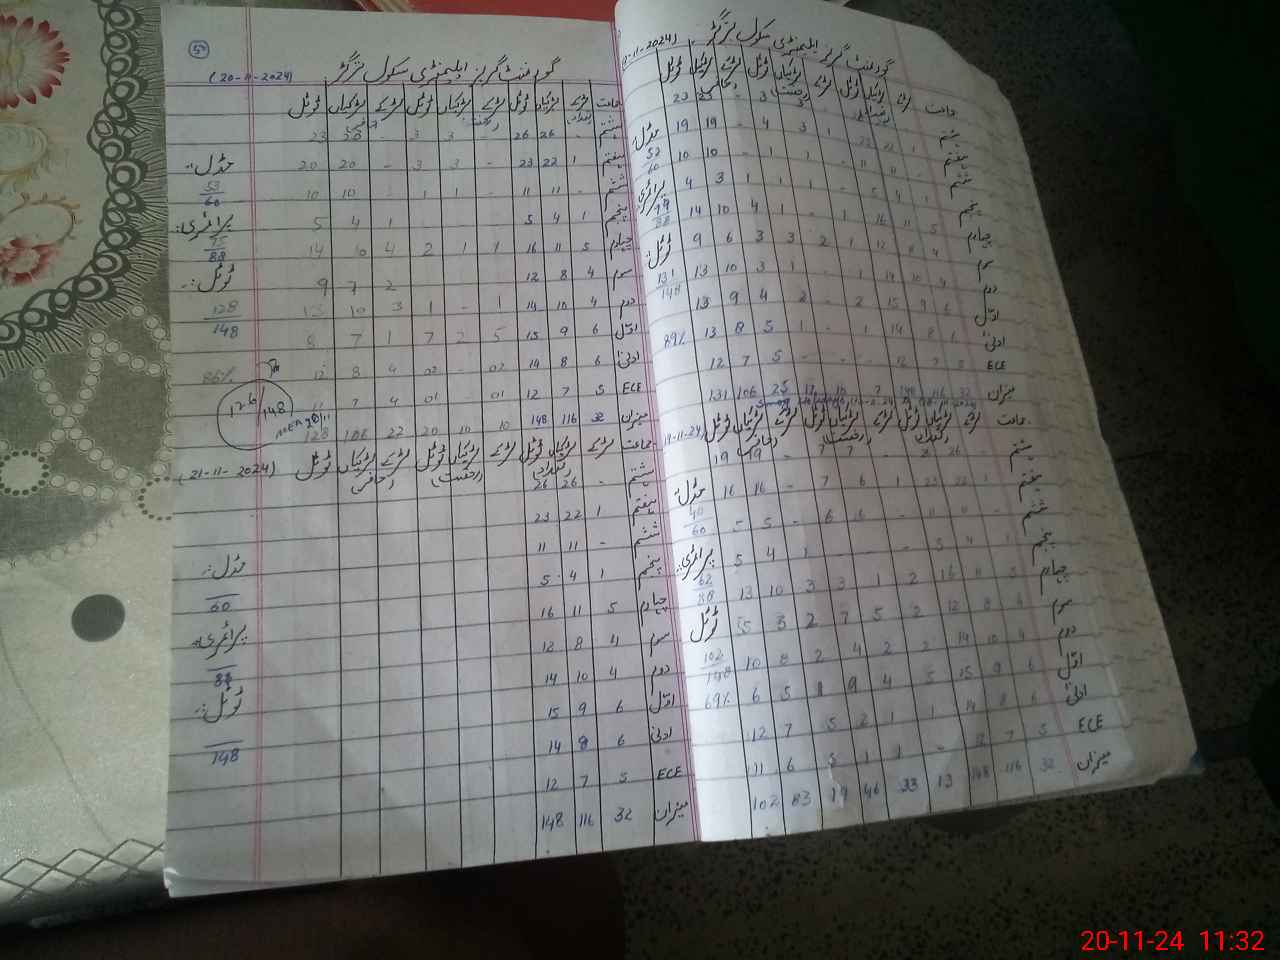 50
گورنمنٹ گرلز ایلیمنٹری سکول
(20-11-2024)
جماعت لڑکے لڑکیاں ٹوٹل لڑکے لڑکیاں ٹوٹل لڑکے لڑکیاں ٹوٹل
ہشتم - 26 26 - 3 3 -
ہفتم 1 22 23 - 3 3 - 20 20
ششم - 11 11 - 1 1 - 10 10
پنجم 1 4 5 - - - 1 4 5
چہارم 5 11 16 1 1 2 4 10 14
سوم 4 8 12 2 7 9
دوم 4 10 14 1 - 1 3 10
اول 6 9 15 5 2 7 1 7 8
ادنیٰ 6 8 14 02 - 02 4 8 12
ECE 5 7 12 01 - 01 4 7
میزان 32 116 148 10 10 20 22 106 128
مڈل:
53/60
پرائمری:
75/88
ٹوٹل:
128/148
86%
126/148
(21-11-2024)
جماعت لڑکے لڑکیاں ٹوٹل لڑکے لڑکیاں ٹوٹل لڑکے لڑکیاں ٹوٹل
ہشتم - 26 26
ہفتم 1 22 23
ششم - 11 11
پنجم 1 4 5
چہارم 5 11 16
سوم 4 8 12
دوم 4 10 14
اول 6 9 15
ادنیٰ 6 8 14
ECE 5 7 12
میزان 32 116 148
مڈل:
60
پرائمری:
88
ٹوٹل:
148
گورنمنٹ گرلز ایلیمنٹری سکول
جماعت لڑکے لڑکیاں ٹوٹل لڑکے لڑکیاں ٹوٹل لڑکے لڑکیاں ٹوٹل
ہشتم - 3 - 23 23
ہفتم 1 22 23 1 3 4 - 19 19
ششم - 11 11 - 1 1 - 10 10
پنجم 1 4 5 - 1 1 1 3 4
چہارم 5 11 16 1 - 1 4 10 14
سوم 4 8 12 1 2 3 3 6 9
دوم 4 10 14 1 - 1 3 10 13
اول 6 9 15 2 - 2 4 9 13
ادنیٰ 6 8 14 1 - 1 5 8 13
ECE 5 7 12 - - - 5 7 12
میزان 32 116 148 7 10 17 25 106 131
مڈل:
52/60
پرائمری:
79/88
ٹوٹل:
131/148
89%
19-11-24
جماعت لڑکے لڑکیاں ٹوٹل لڑکے لڑکیاں ٹوٹل لڑکے لڑکیاں ٹوٹل
ہشتم - 26 - 7 7 - 19 19
ہفتم 1 22 23 1 6 7 - 16 16
ششم - 11 11 - 6 6 - 5 5
پنجم 1 4 5 - - - 1 4 5
چہارم 5 11 16 2 1 3 3 10 13
سوم 4 8 12 2 5 7 2 3 5
دوم 4 10 14 2 2 4 2 8 10
اول 6 9 15 5 4 9 1 5 6
ادنیٰ 6 8 14 1 1 2 5 7 12
ECE 5 7 12 - 1 1 5 6 11
میزان 32 116 148 13 33 46 19 83 102
مڈل:
40/60
پرائمری:
62/88
ٹوٹل
102/148
69%
20-11-24 11:32